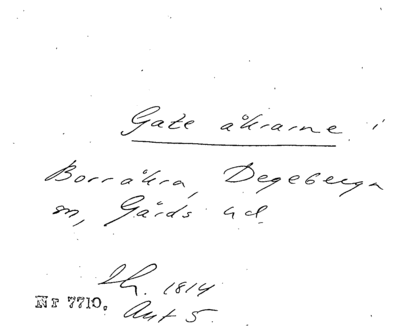 Gate åkrarne i
Borråkra, Degeberga
sn, Gärds hd.
Sk. 1814
Nr 7710. Akt 5.